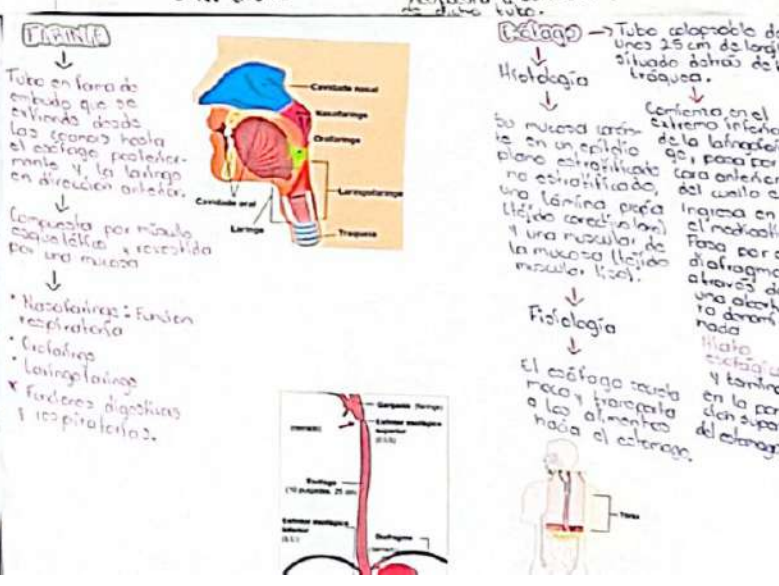 de dicho tubo.
FARINGE
Tubo en forma de
embudo que se
extiende desde
las coanas hasta
el esófago posterior-
mente y la laringe
en dirección anterior.
Compuesta por músculo
esquelético y revestida
por una mucosa
• Nasofaringe: Función
respiratoria
• Orofaringe
• Laringofaringe
* Funciones digestivas
y respiratorias.
Cavidade nasal
Nasofaringe
Orofaringe
Laringofaringe
Cavidade oral
Laringe
Traqueia
Garganta (faringe)
(cerrado)
Esfínter esofágico
superior
(E.S.)
Esófago
(10 pulgadas, 25 cm)
Esfínter esofágico
inferior
Diafragma
Esófago → Tubo colapsable de
unos 25 cm de long
situado detrás de la
tráquea.
Histología
Su mucosa
te en un epitelio
plano estratificado
no estratificado,
una lámina propia
(tejido conectivo
y una muscular de
la mucosa (tejido
muscular liso).
Fisiología
El esófago secreta
moco y transporta
a los alimentos
hacia el estomago.
Comienza en el
extremo inferior
de la laringofarin
ge, pasa por
cara anterior
del cuello e
Ingresa en
el mediastino
Pasa por
diafragma
através de
una
ra denomi
nada
Hiato
esofágico
y termina
en la por
ción supe
del estomago
Tórax